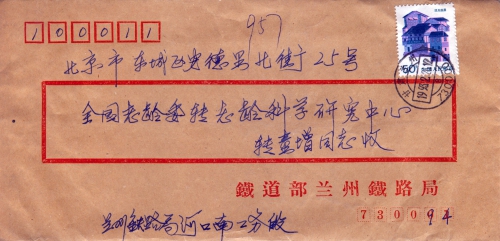 100011
957
北京市东城区安德里北街25号
全国老龄委转老龄科学研究中心
转董增同志收
50
鐵道部兰州鐵路局
730094
兰州铁路局河口南工务段